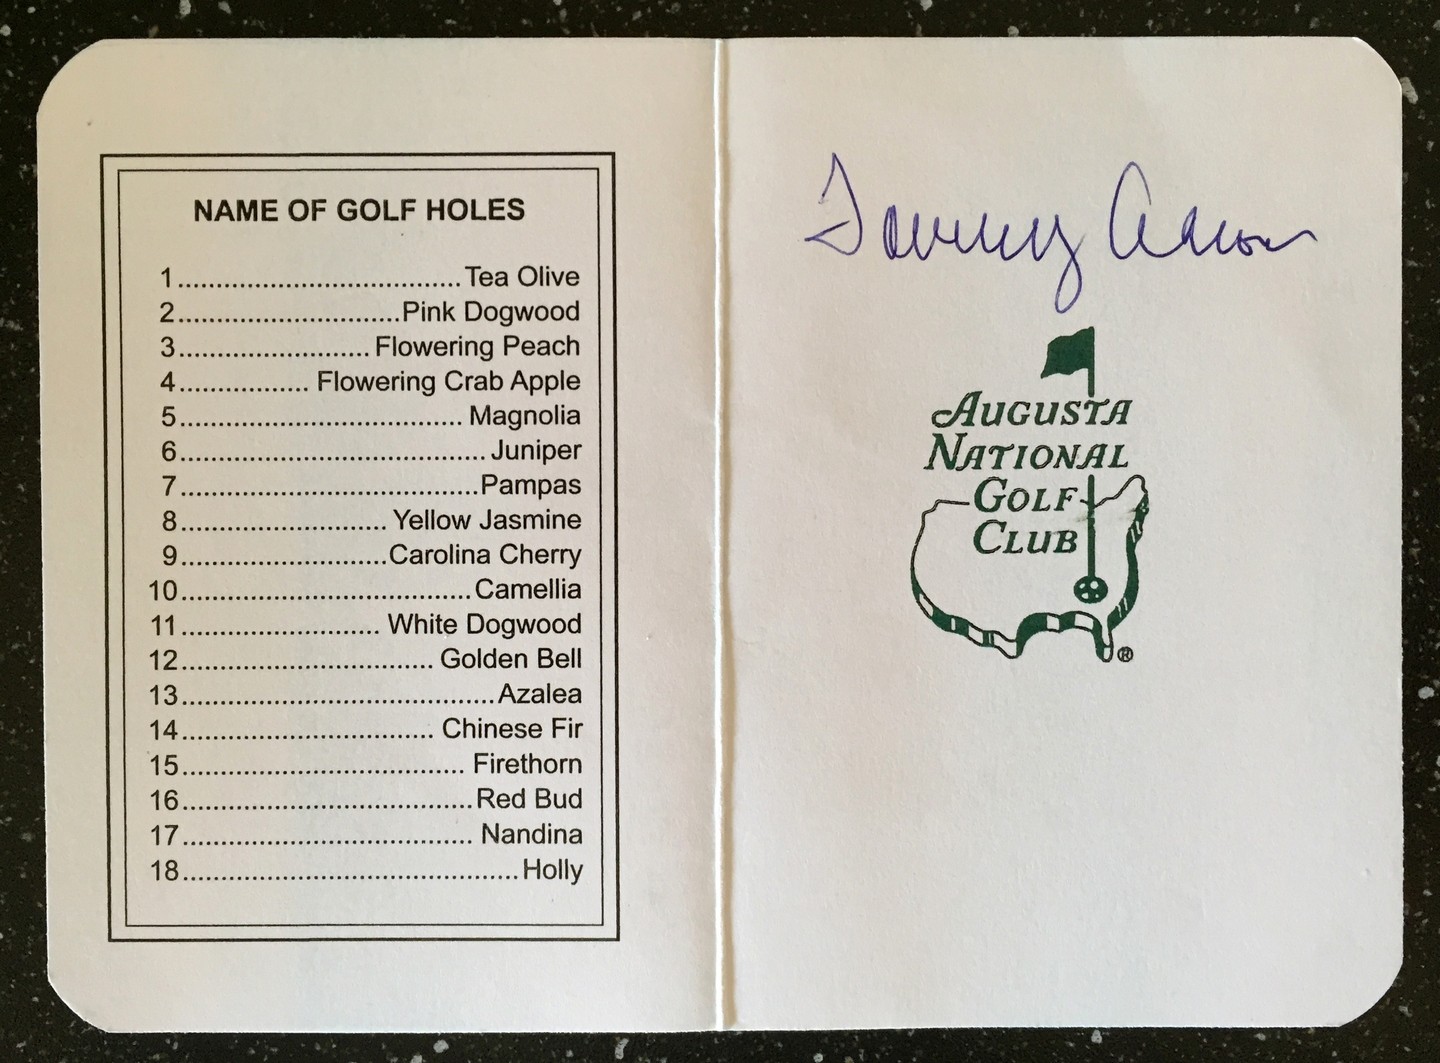 NAME OF GOLF HOLES
1..................................Tea Olive
2..........................Pink Dogwood
3...................... Flowering Peach
4............... Flowering Crab Apple
5................................. Magnolia
6.................................... Juniper
7...................................Pampas
8........................ Yellow Jasmine
9........................Carolina Cherry
10..................................Camellia
11....................... White Dogwood
12............................. Golden Bell
13.....................................Azalea
14............................. Chinese Fir
15................................. Firethorn
16..................................Red Bud
17.................................. Nandina
18.......................................Holly
Tommy Aaron
AUGUSTA
NATIONAL
GOLF
CLUB
®